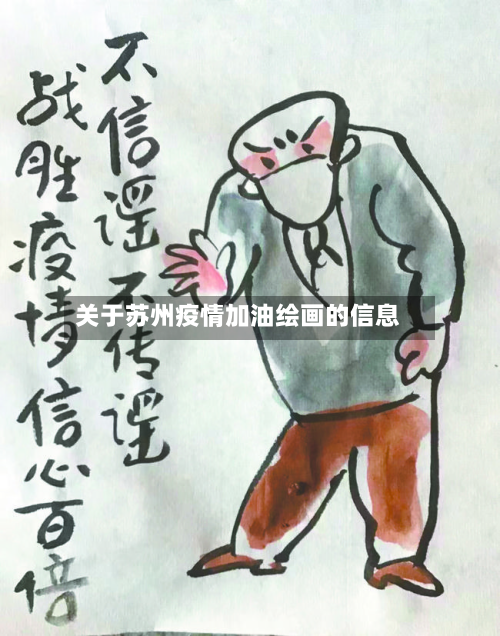 不信谣不传谣
战胜疫情信心百倍
关于苏州疫情加油绘画的信息